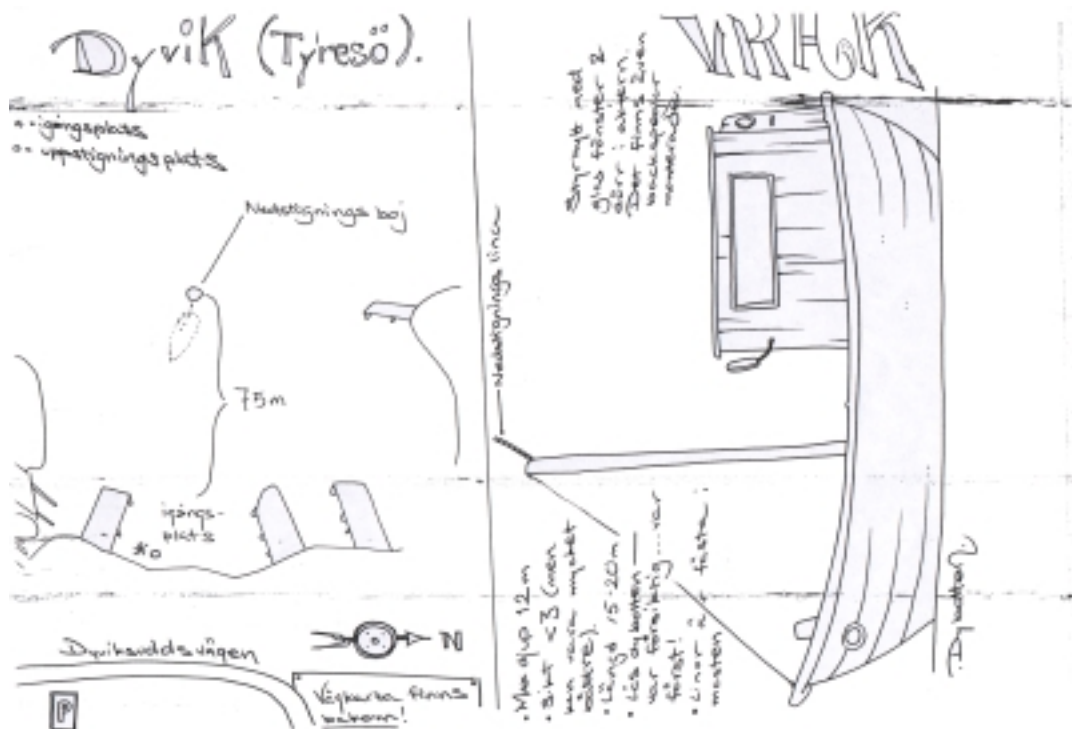 Dyvik (Tyresö).
igångsplats
uppstigningsplats
Nedstignings boj
75m
igångs-
plats
*o
Dyviksuddsvägen
P
N
Vägkarta finns
bakom!
VRAK
Styrhytt med
glas fönster &
dörr i aktern.
Det finns även
monterade.
Nedstignings lina
• Max djup 12m
• Sikt <3 (men
kan vara mycket
bättre).
• Längd 15-20m
• Lös dybotten
var försiktig...var
först!
• Linor är fästa i
masten
Dybotten